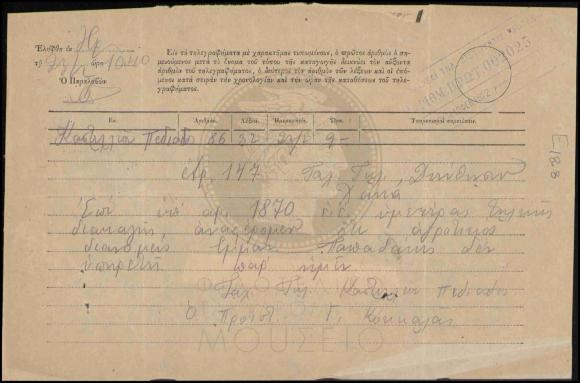 Ἐλήφθη ἐκ Ηρ
τῇ 27/5 ὥρα 1040
Ὁ Παραλαβὼν
Εἰς τὰ τηλεγραφήματα μὲ χαρακτῆρας τυπωμένους, ὁ πρῶτος ἀριθμὸς ὁ ση-
μειούμενος μετὰ τὸ ὄνομα τοῦ τόπου τῆς καταγωγῆς δεικνύει τὸν αὔξοντα
ἀριθμὸν τοῦ τηλεγραφήματος, ὁ δεύτερος τὸν ἀριθμὸν τῶν λέξεων καὶ οἱ ἑπό-
μενοι κατὰ σειρὰν τὴν χρονολογίαν καὶ τὴν ὥραν τῆς καταθέσεως τοῦ τηλε-
γραφήματος.
003025
Ἐκ Ἀριθμός. Λέξεις. Ἡμερομηνία. Ὥρα. Ὑπηρεσιακαὶ σημειώσεις.
Καστέλλιον Πεδιάδος 86 32 9-
E188
Αρ. 147 Ταχ. Τηλ. Διεύθυνσιν
Χανιά
Επί υπ αρ. 1870 υμετέρας
διαταγής, αναφέρομεν ότι αγροτικός
διανομεύς Εμμαν. Παπαδάκης δεν
υπηρετή παρ' ημίν
Ταχ. Τηλ. Καστελλίου Πεδιάδος
Ο Προϊστ. Γ. Κοκκαλας
ΜΟΥΣΕΙΟ